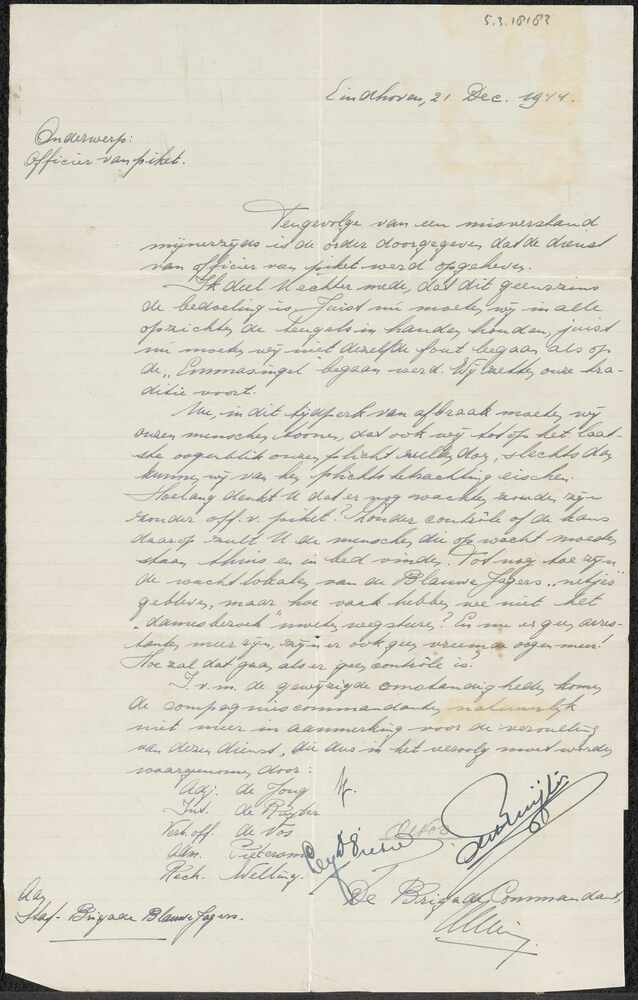 5.3.18183
Eindhoven, 21 Dec. 1944.
Onderwerp:
Officier van piket.
Tengevolge van een misverstand
mijnerzijds is de order doorgegeven dat de dienst
van officier van piket werd opgeheven.
Ik deel U echter mede, dat dit geenszins
de bedoeling is. Juist nu moeten wij in alle
opzichten de teugels in handen houden, juist
nu moeten wij niet dezelfde fout begaan als op
de „Emmasingel" begaan werd. Wij zetten onze tra-
ditie voort.
Nu, in dit tijdperk van afbraak moeten wij
onzen menschen toonen, dat ook wij tot op het laat-
ste oogenblik onzen plicht zullen doen, slechts dan
kunnen wij van hen plichtsbetrachting eischen.
Hoelang denkt U dat er nog wachten zouden zijn
zonder off. v. piket? Zonder contrôle of de kans
daarop zult U de menschen die op wacht moeten
staan thuis en in bed vinden. Tot nog toe zijn
de wachtlokalen van de Blauwe Jagers „netjes"
gebleven, maar hoe vaak hebben we niet het
„damesbezoek" moeten wegsturen? En nu er geen arres-
tanten meer zijn, zijn er ook geen vreemde oogen meer!
Hoe zal dat gaan als er geen contrôle is?
I.v.m. de gewijzigde omstandigheden komen
de compagniescommandanten natuurlijk
niet meer in aanmerking voor de vervulling
van dezen dienst, die dus in het vervolg moet worden
waargenomen door:
Adj. de Jong
Int. de Ruyter
Verb. off. de Vos
Adm. Pietersma
Rech. Welling.
De Brigade Commandant,
Aan
Staf- Brigade Blauwe Jagers.